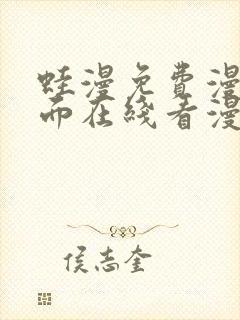 蛙漫免费漫
而在线看漫
侯志奎